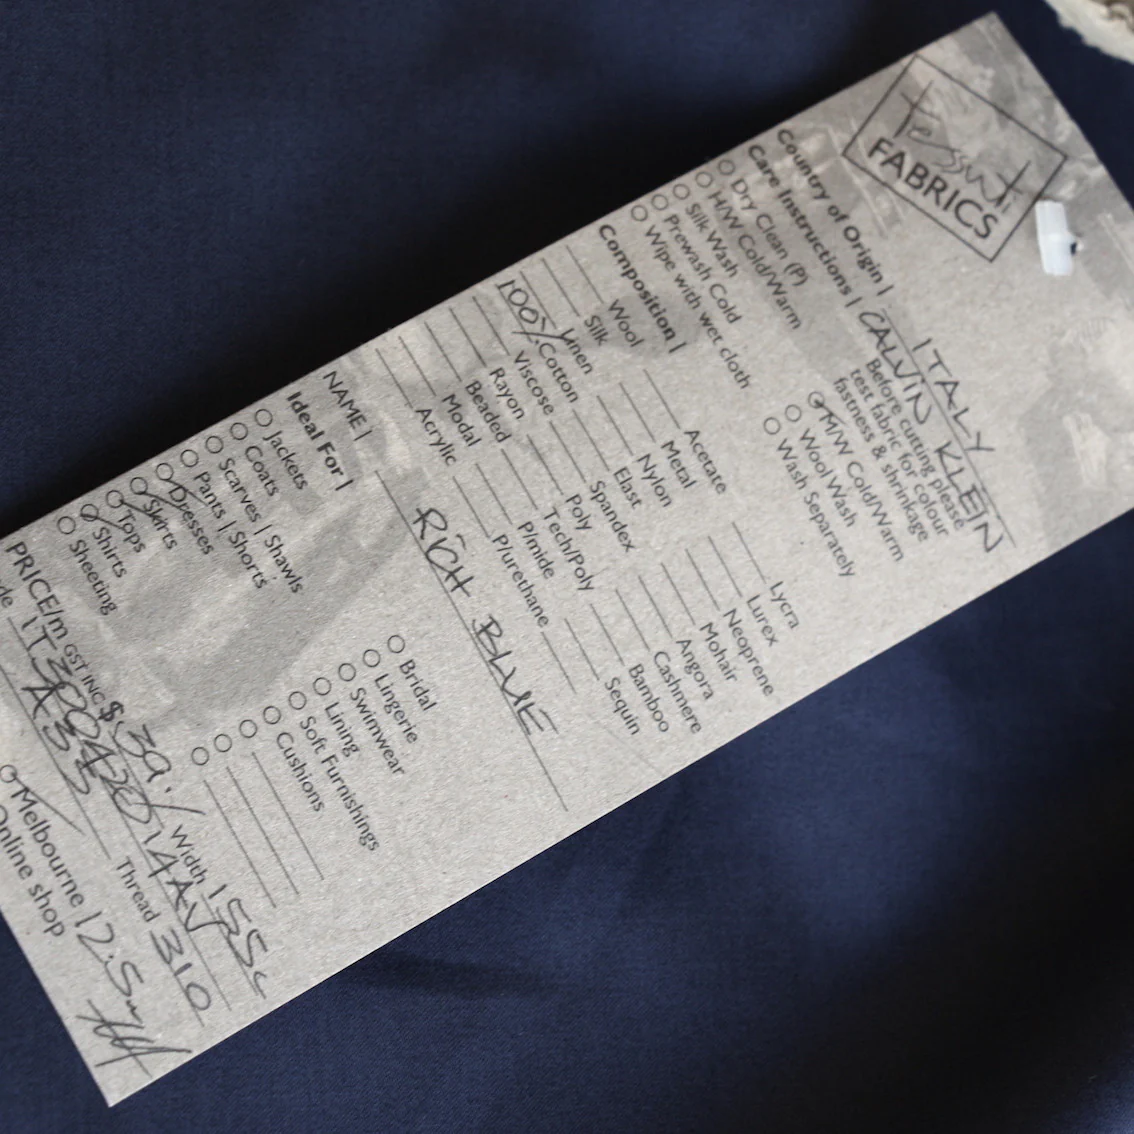 tessuti
FABRICS
Country of Origin | ITALY
Care Instructions | CALVIN KLEIN
Dry Clean (P)
H/W Cold/Warm
Silk Wash
Prewash Cold
Wipe with wet cloth
Before cutting please
test fabric for colour
fastness & shrinkage
M/W Cold/Warm
Wool Wash
Wash Separately
Composition |
Wool
Silk
Linen
100% Cotton
Viscose
Rayon
Beaded
Modal
Acrylic
Acetate
Metal
Nylon
Elast
Spandex
Poly
Tech/Poly
P/mide
P/urethane
Lycra
Lurex
Neoprene
Mohair
Angora
Cashmere
Bamboo
Sequin
NAME | RICH BLUE
Ideal For |
Jackets
Coats
Scarves | Shawls
Pants | Shorts
Dresses
Skirts
Tops
Shirts
Sheeting
Bridal
Lingerie
Swimwear
Lining
Soft Furnishings
Cushions
PRICE/m GST INC $ 39./ Width 155c
Thread 310
Melbourne 12.5m
Online shop